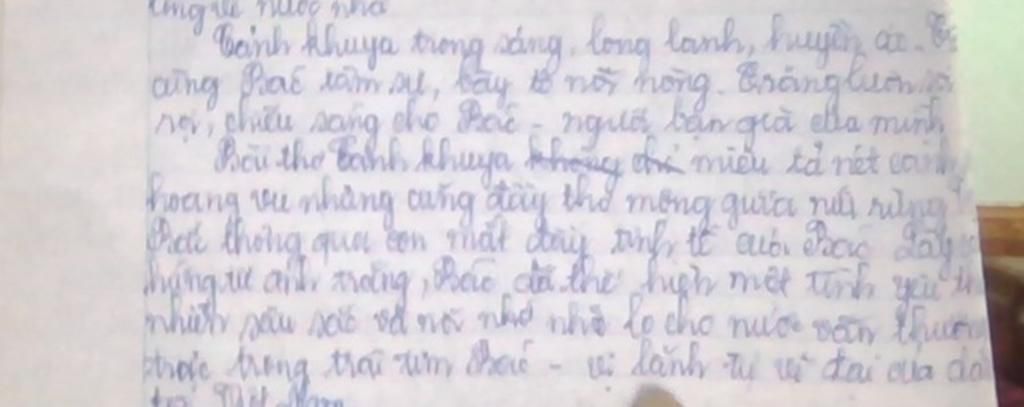 nước nhà
Cảnh khuya trong sáng, long lanh, huyền ảo.
cùng Bác tâm sự, bày tỏ nỗi nòng. Trăng luôn soi
rọi, chiếu sáng cho Bác - người bạn già của mình
Bài thơ Cảnh khuya không chỉ miêu tả nét cảnh
hoang vu nhưng cũng đầy thơ mộng giữa núi rừng
Bắc thông qua con mắt đầy tinh tế của Bác. Lấy
hứng từ ánh trăng, Bác đã thể hiện một tình yêu
nhiên sâu sắc và nỗi nhớ nhỗ lo cho nước vẫn thường
trực trong trái tim Bác - vị lãnh tụ vĩ đại của
Việt Nam